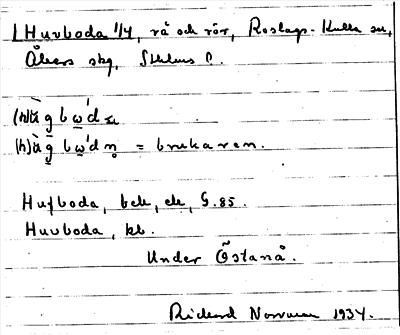 L Huvboda 1/4, rå och rör, Roslags-Kulla sn,
Åkers skg, Sthlms l.
(h)ù̀g bω'da
(h)ùg bω'dn̥ = brukaren.
Hufboda, bek, ek, G. 85.
Huvboda, kb.
Under Östanå.
Rickard Norrman 1934.